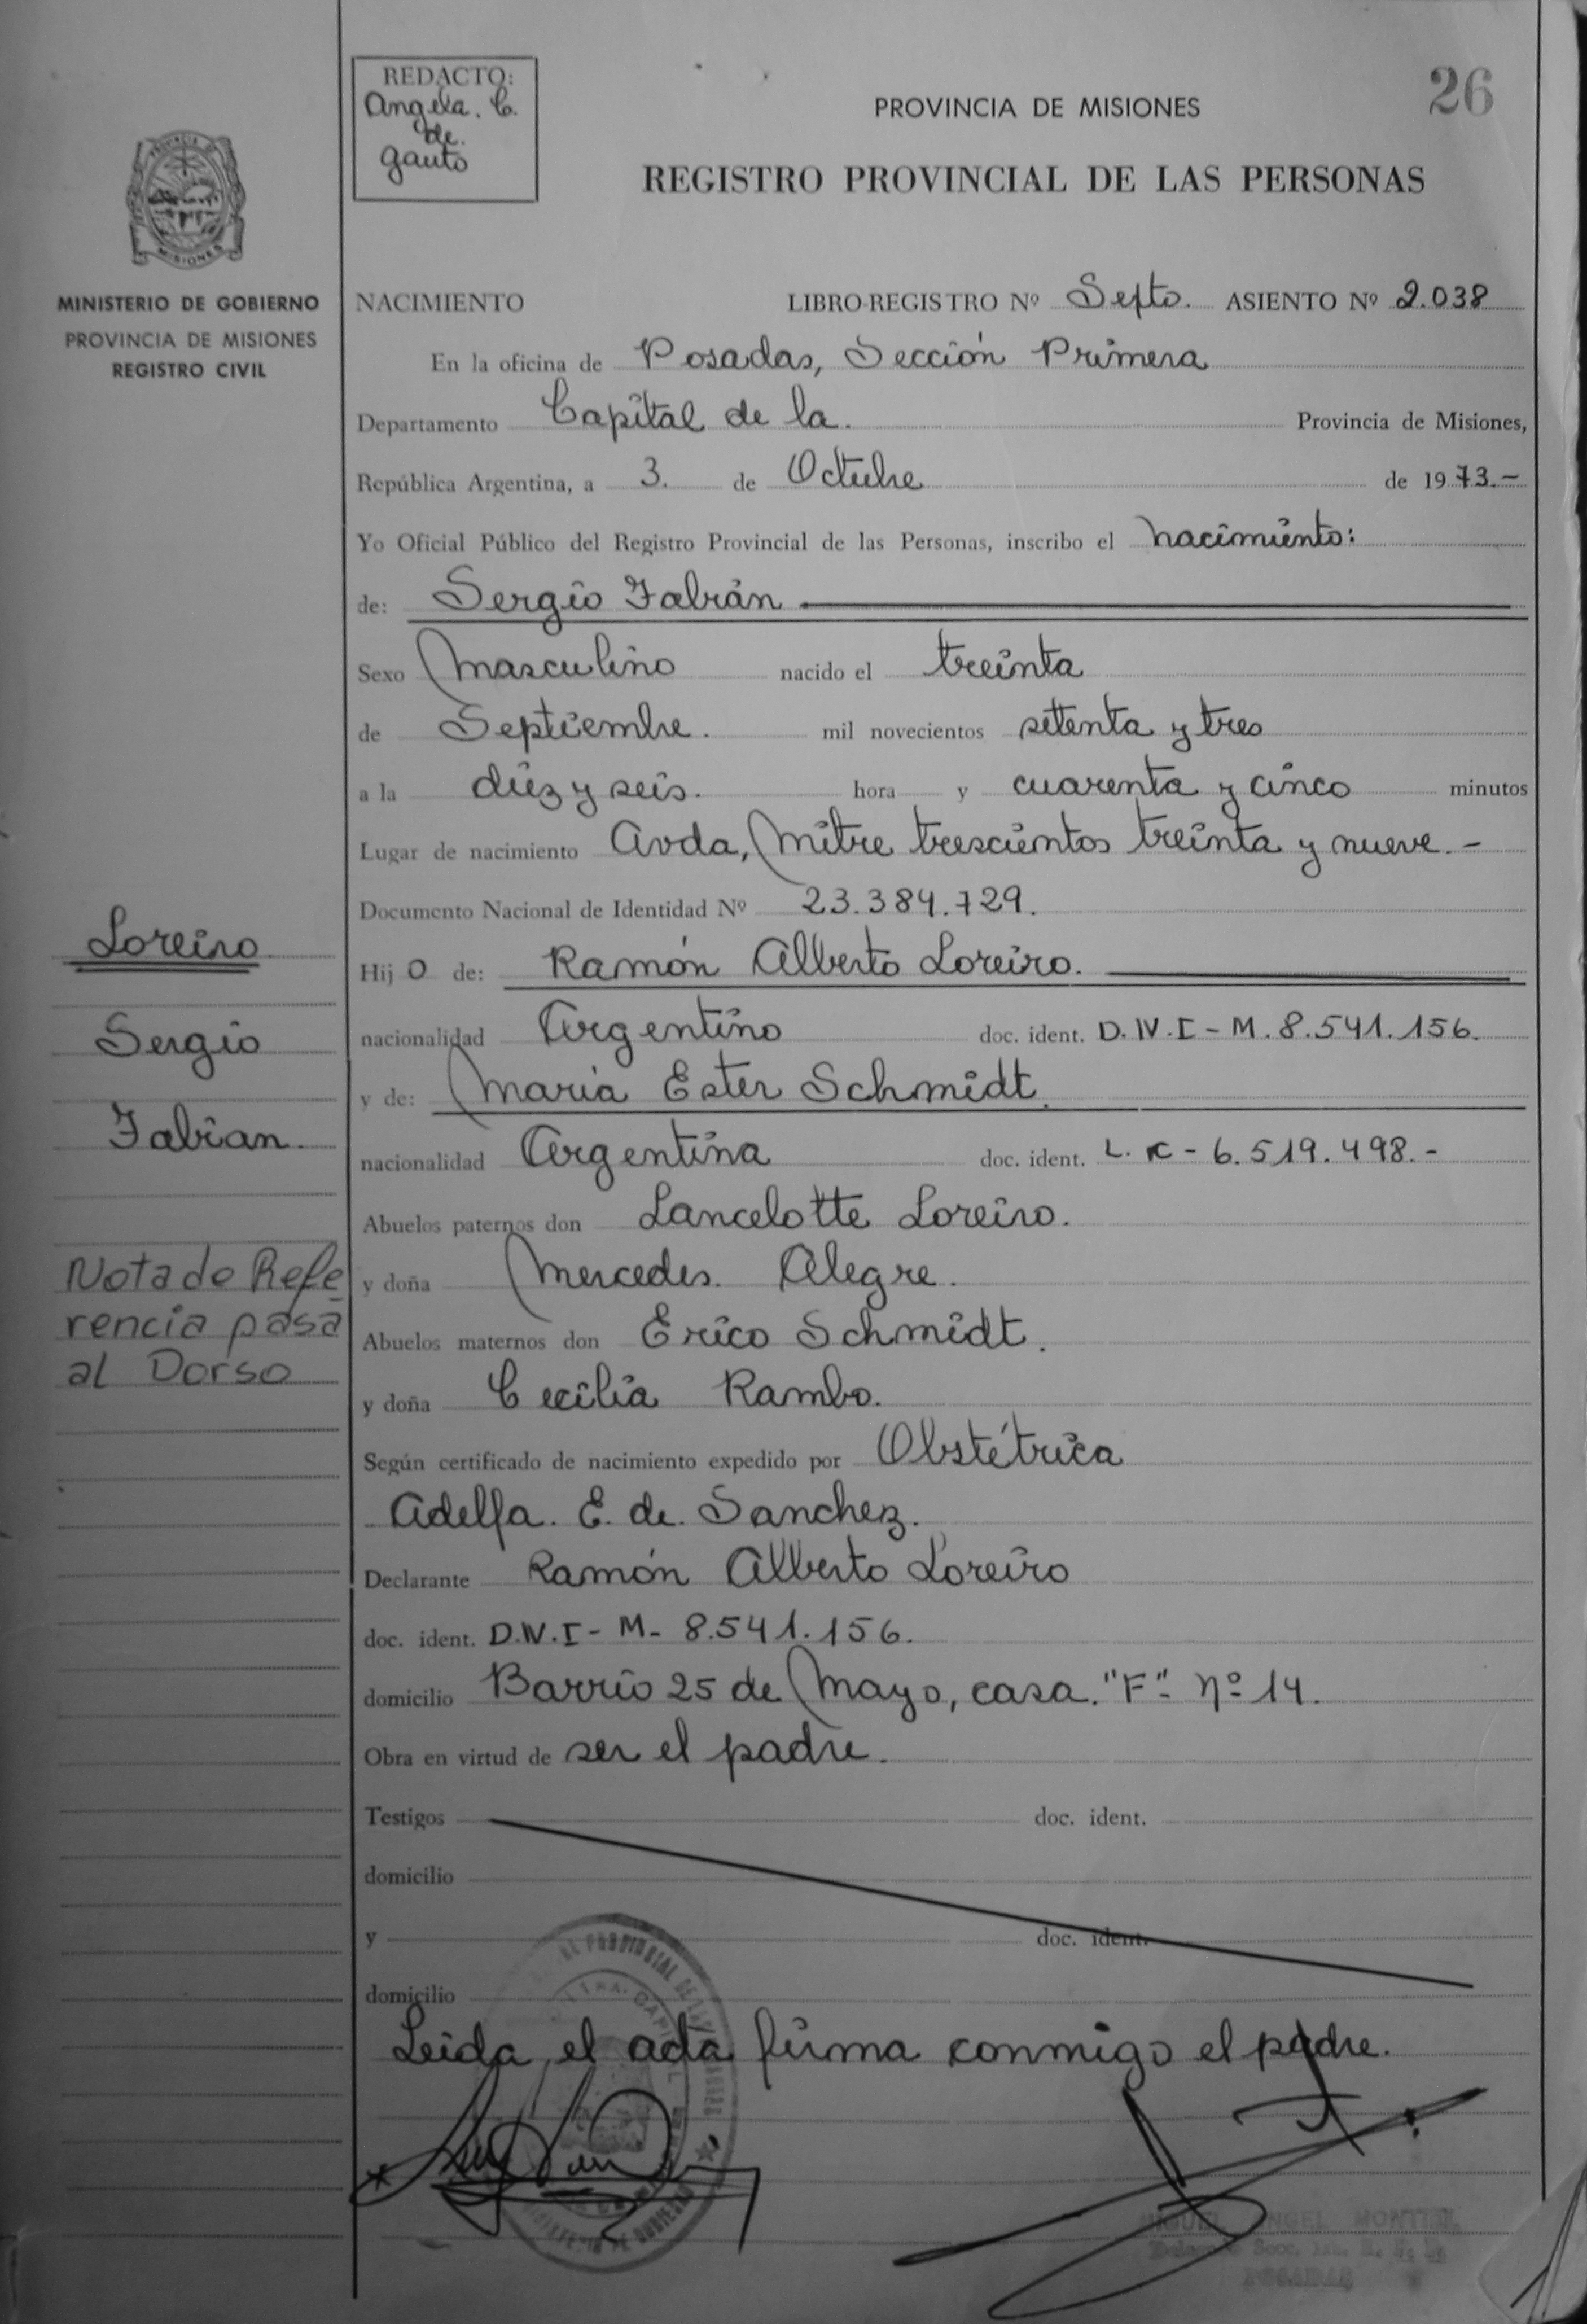 REDACTO:
Angela. C.
de.
Gauto
PROVINCIA DE MISIONES
26
REGISTRO PROVINCIAL DE LAS PERSONAS
MISIONES
MINISTERIO DE GOBIERNO
PROVINCIA DE MISIONES
REGISTRO CIVIL
NACIMIENTO LIBRO-REGISTRO Nº Septo. ASIENTO Nº 2.038
En la oficina de Posadas, Sección Primera
Departamento Capital de la. Provincia de Misiones,
República Argentina, a 3. de Octubre de 1973.-
Yo Oficial Público del Registro Provincial de las Personas, inscribo el nacimiento:
de: Sergio Fabián
Sexo Masculino nacido el treinta
de Septiembre. mil novecientos setenta y tres
a la diez y seis. hora y cuarenta y cinco minutos
Lugar de nacimiento Avda, Mitre trescientos treinta y nueve.-
Documento Nacional de Identidad Nº 23.384.729.
Hijo de: Ramón Alberto Loreiro.
nacionalidad Argentino doc. ident. D.N.I - M. 8.541.156.
y de: Maria Ester Schmidt.
nacionalidad Argentina doc. ident. L. C - 6.519.498.-
Abuelos paternos don Lancelotte Loreiro.
y doña Mercedes. Alegre.
Abuelos maternos don Erico Schmidt.
y doña Cecilia Rambo.
Según certificado de nacimiento expedido por Obstétrica
Adelfa. E. de. Sanchez.
Declarante Ramón Alberto Loreiro
doc. ident. D.N.I - M- 8.541.156.
domicilio Barrio 25 de Mayo, casa. "F"- Nº 14.
Obra en virtud de ser el padre.
Testigos doc. ident.
domicilio
y doc. ident.
domicilio
Leida el acta firma conmigo el padre.
MIGUEL ANGEL MONTIEL
POSADAS
Loreiro
Sergio
Fabian.
Nota de Refe
rencia pasa
al Dorso